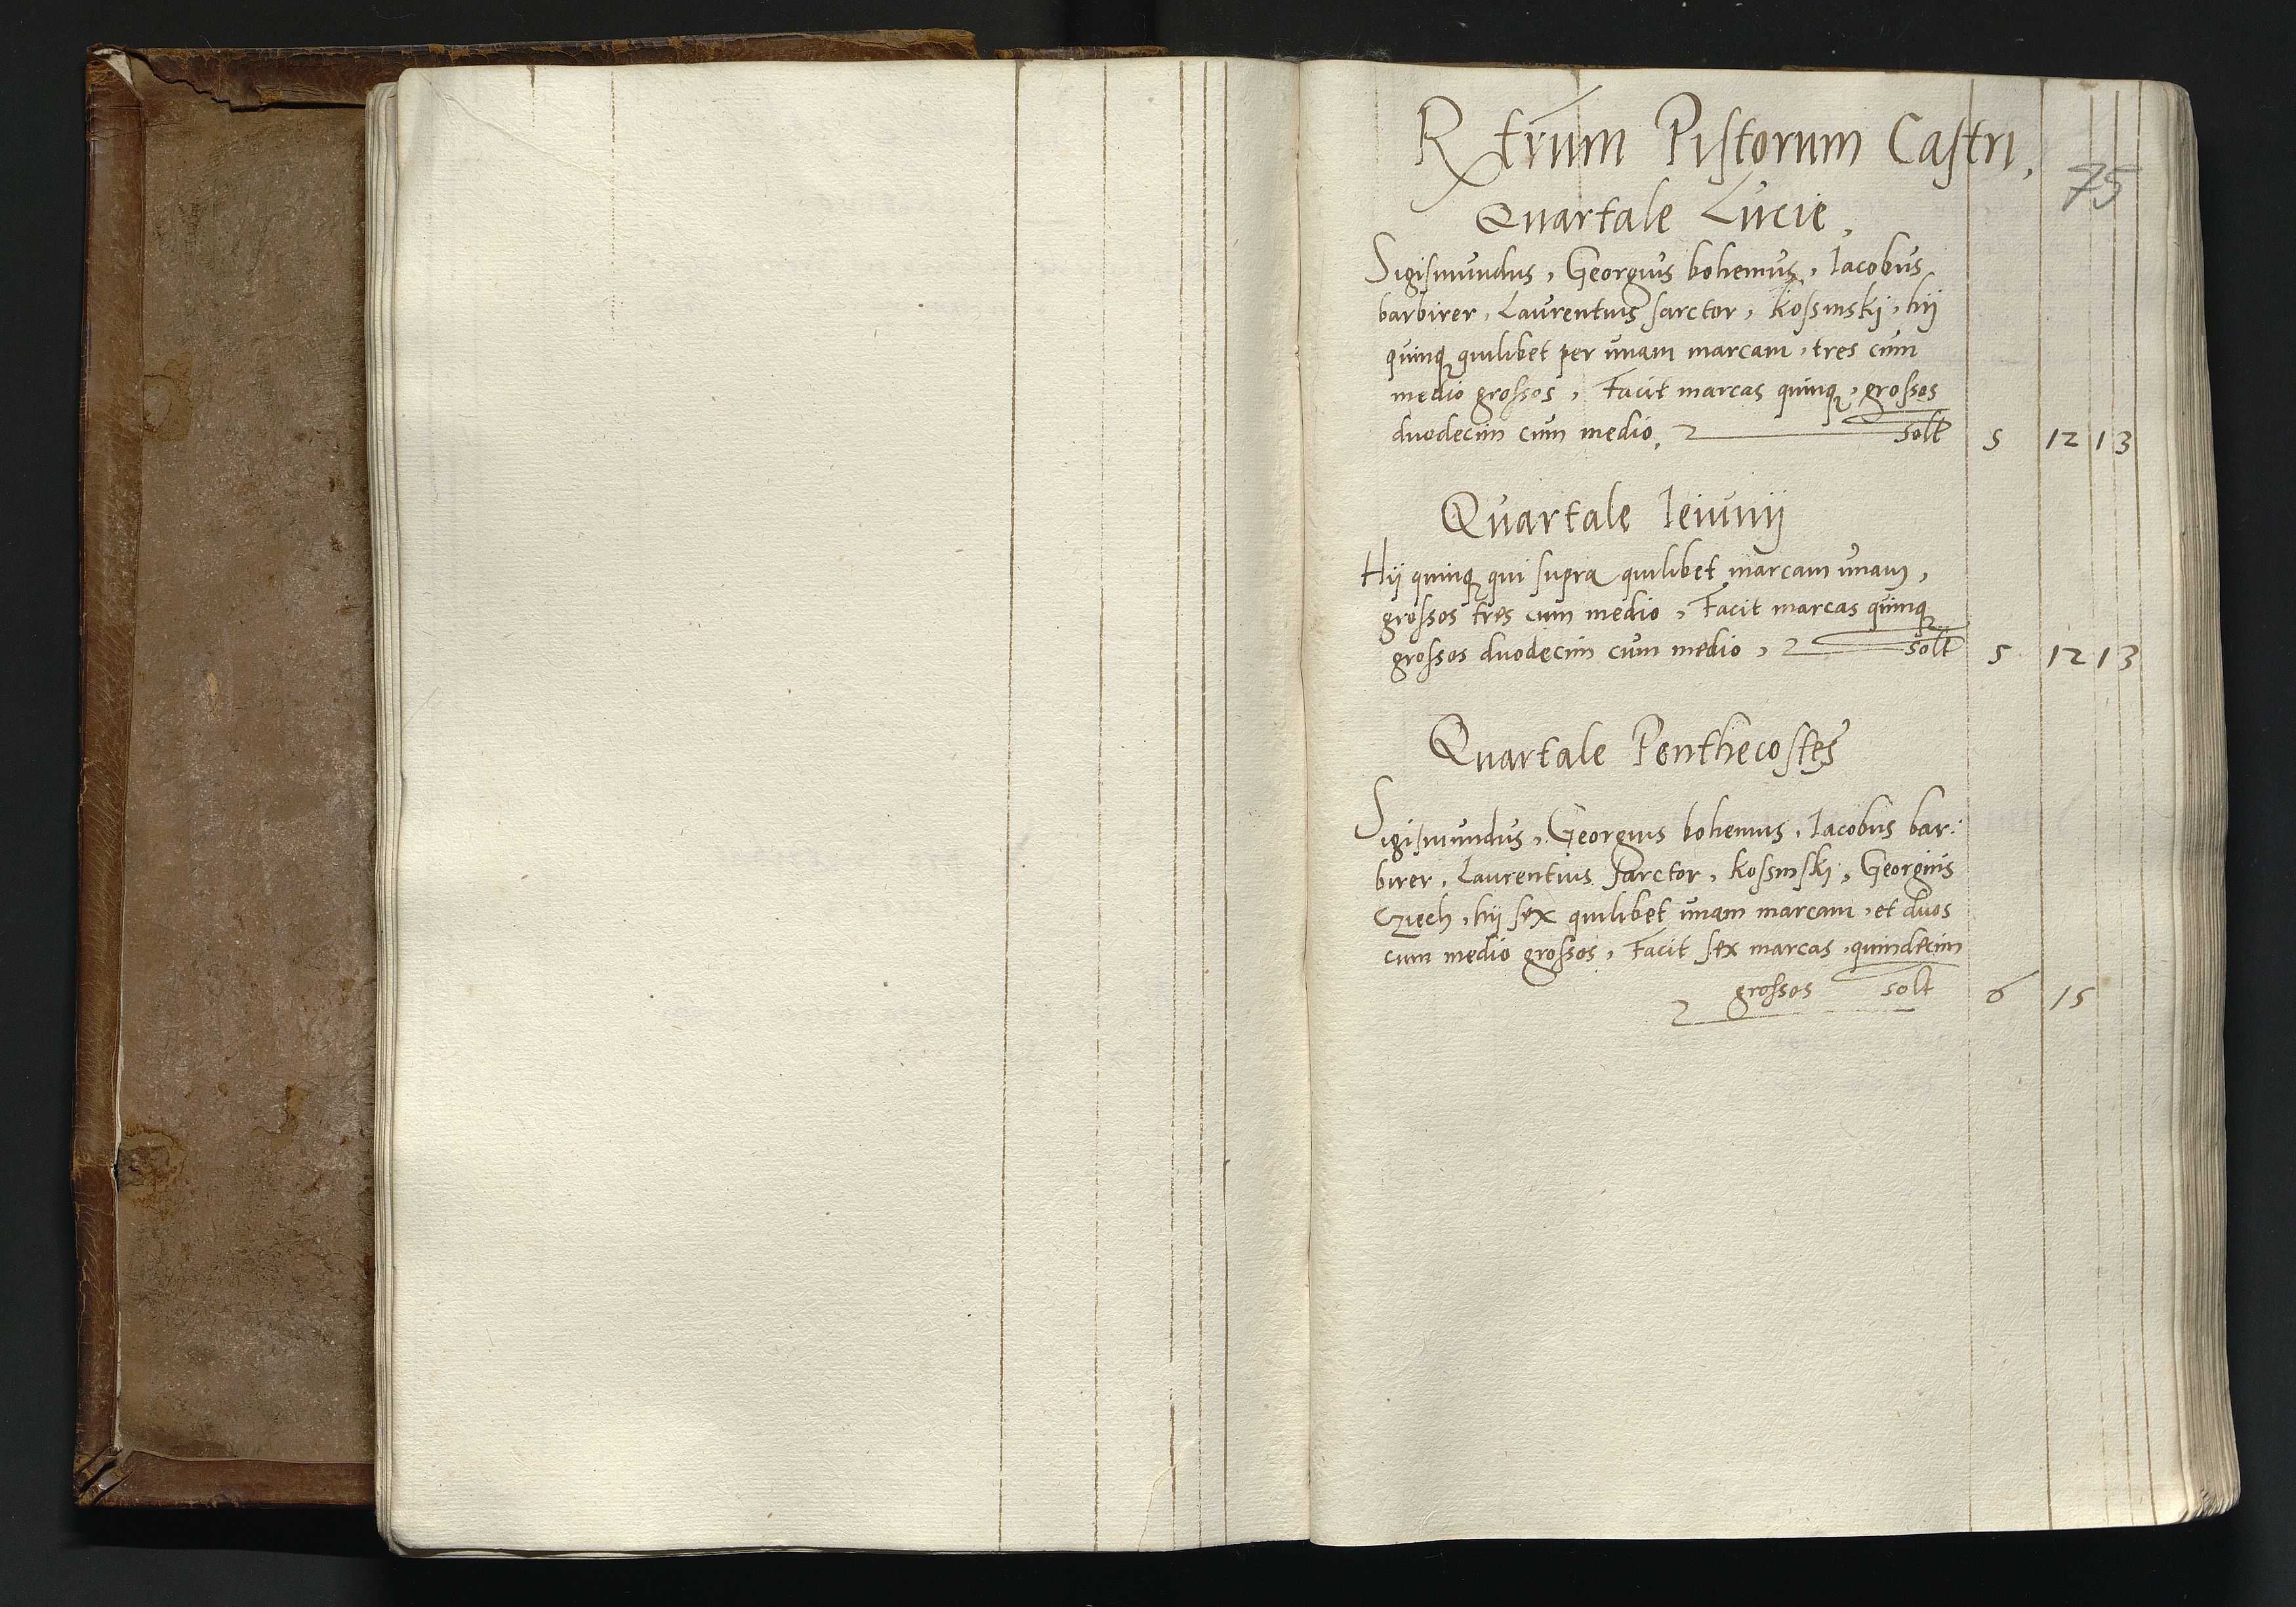 Rxtrum Pistorum Castri,
75
Quartale Lucie,
Sigismundus, Georgius bohemus, Iacobus
barbirer, Laurentius sarctor, Kossinskj, hij
quinq quilibet per unam marcam, tres cum
medio grossos, Facit marcas quinq, grossos
duodecim cum medio, solt 5 12 1 3
Quartale Ieiunij
Hij quinq qui supra quilibet marcam unam,
grossos tres cum medio, Facit marcas quinq
grossos duodecim cum medio, solt 5 12 1 3
Quartale Penthecostes
Sigismundus, Georgius bohemus, Iacobus bar:
birer, Laurentius Sarctor, Kossinskj, Georgius
Cziech, hij sex quilibet unam marcam, et duos
cum medio grossos, Facit sex marcas, quindecim
grossos solt 6 15